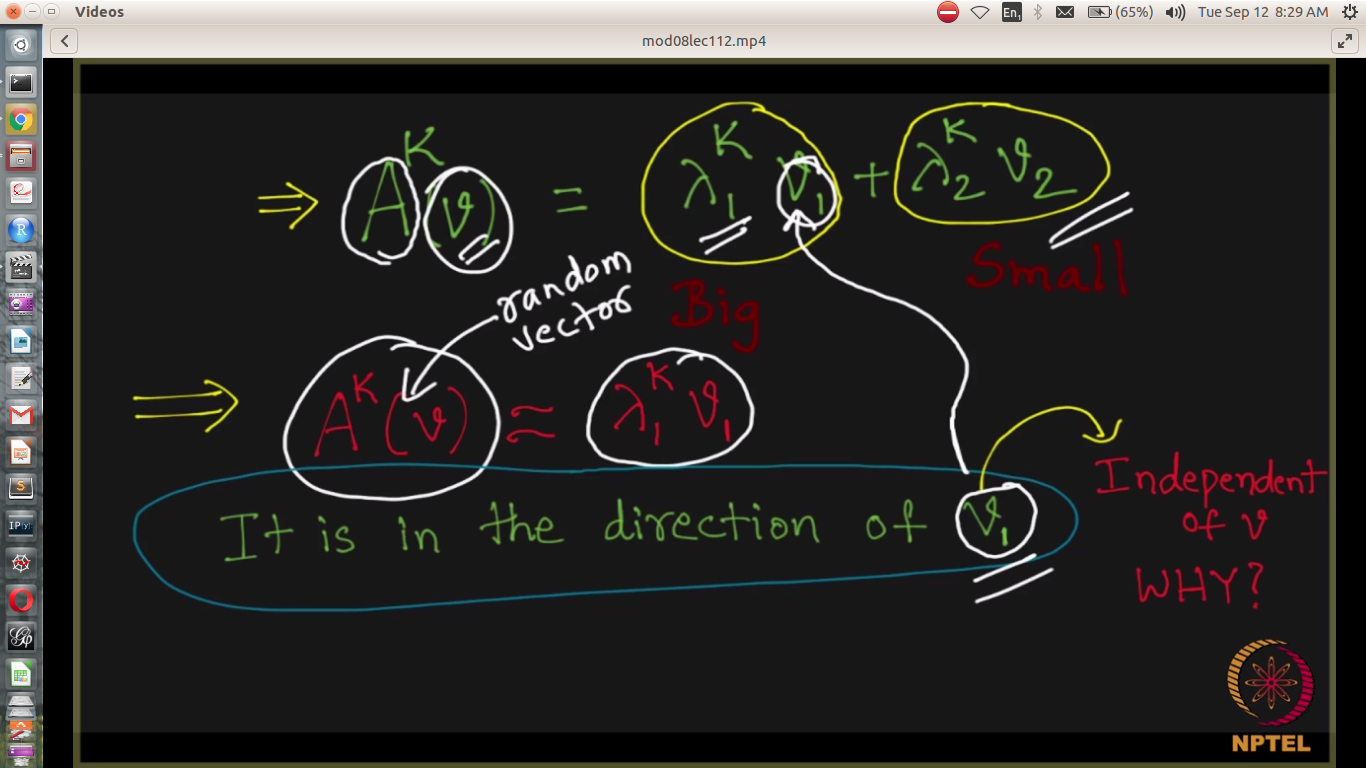 Videos
En1 (65%) Tue Sep 12 8:29 AM
mod08lec112.mp4
⇒ A^K (v) = λ₁^K v₁ + λ₂^K v₂
Small
Big
random
vector
⇒ A^K (v) ≈ λ₁^K v₁
It is in the direction of v₁
Independent
of v
WHY?
NPTEL